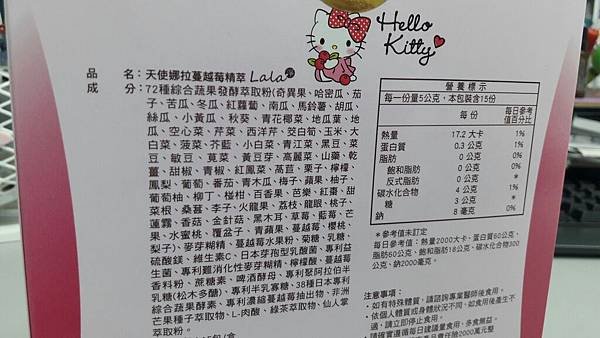 Hello
Kitty
品 名：天使娜拉蔓越莓精萃 Lala
成 分：72種綜合蔬果發酵萃取粉(奇異果、哈密瓜、茄
子、苦瓜、冬瓜、紅蘿蔔、南瓜、馬鈴薯、胡瓜、
絲瓜、小黃瓜、秋葵、青花椰菜、地瓜葉、地
瓜、空心菜、芹菜、西洋芹、茭白筍、玉米、大
白菜、菠菜、芥藍、小白菜、青江菜、黑豆、菜
豆、敏豆、莧菜、黃豆芽、高麗菜、山藥、乾
薑、甜椒、青椒、紅鳳菜、萵苣、栗子、檸檬、
鳳梨、葡萄、番茄、青木瓜、梅子、蘋果、柚子、
葡萄柚、柳丁、椪柑、百香果、芭樂、紅棗、甜
菜根、桑葚、李子、火龍果、荔枝、龍眼、桃子、
蓮霧、香菇、金針菇、黑木耳、草莓、藍莓、芒
果、水蜜桃、覆盆子、青蘋果、蔓越莓、櫻桃、
梨子)、麥芽糊精、蔓越莓水果粉、菊糖、乳糖、
硫酸鎂、維生素C、日本芽孢型乳酸菌、專利益
生菌、專利難消化性麥芽糊精、檸檬酸、蔓越莓
香料粉、蔗糖素、啤酒酵母、專利聚阿拉伯半
乳糖(松木多醣)、專利半乳寡糖、38種日本專利
綜合蔬果酵素、專利濃縮蔓越莓抽出物、非洲
芒果種子萃取物、L-肉酸、綠茶萃取物、仙人掌
萃取粉。
15包/盒
營養標示
每一份量5公克，本包裝含15份
每份 每日參考值百分比
熱量 17.2 大卡 1%
蛋白質 0.3 公克 1%
脂肪 0 公克 0%
飽和脂肪 0 公克 0%
反式脂肪 0 公克 *
碳水化合物 4 公克 1%
糖 3 公克 *
鈉 8 毫克 0%
＊參考值未訂定
每日參考值：熱量2000大卡、蛋白質60公克、
脂肪60公克、飽和脂肪18公克、碳水化合物300
公克、鈉2000毫克。
注意事項：
•如有特殊體質，請諮詢專業醫師後食用。
•依個人體質或身體狀況不同，如食用後產生不
適，請立即停止食用。
•請確實遵循每日建議量食用，多食無益。
責任險2000萬元整